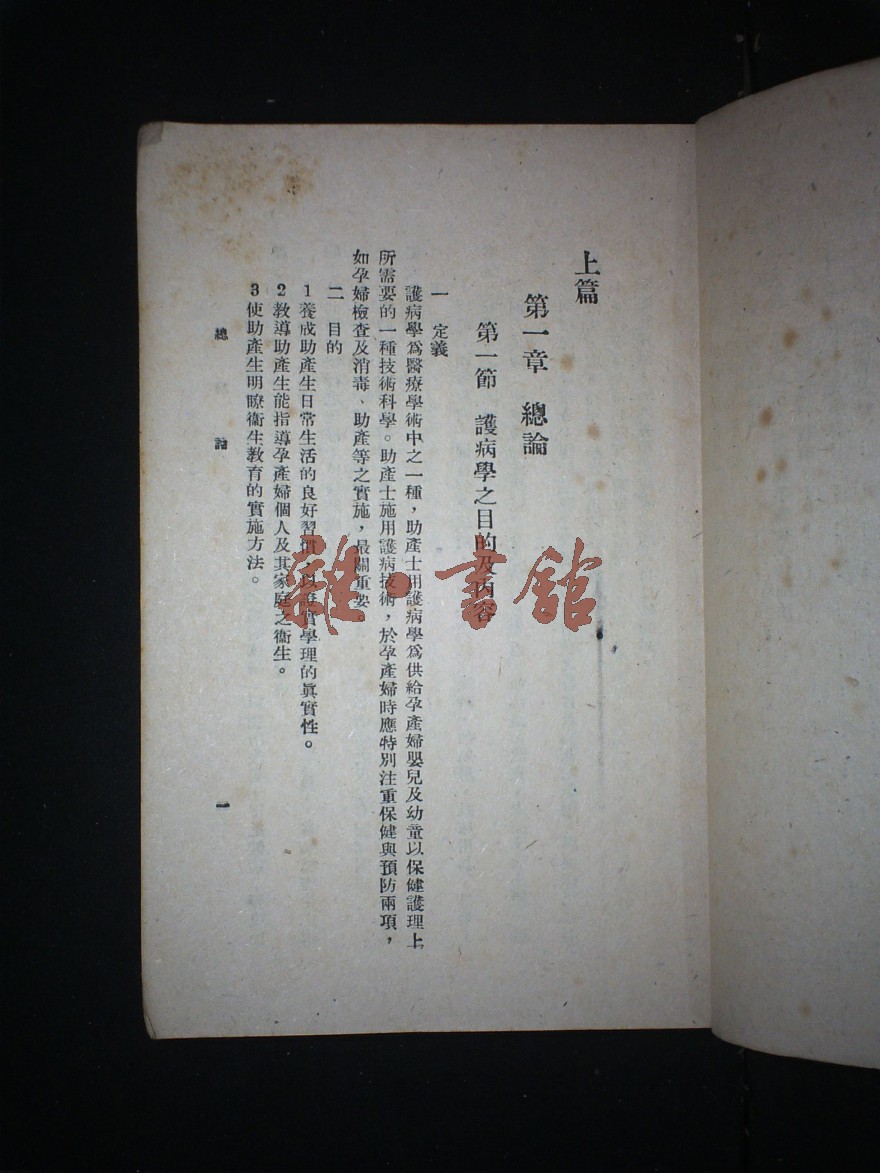 上篇
第一章　總論
第一節　護病學之目的及內容
一　定義
護病學爲醫療學術中之一種，助產士用護病學爲供給孕產婦嬰兒及幼童以保健護理上
所需要的一種技術科學。助產士施用護病技術，於孕產婦時應特別注重保健與預防兩項，
如孕婦檢查及消毒、助產等之實施，最關重要。
二　目的
1養成助產生日常生活的良好習慣，以證實學理的眞實性。
2教導助產生能指導孕產婦個人及其家庭之衞生。
3使助產生明瞭衞生教育的實施方法。
總　論
一
雜·書館